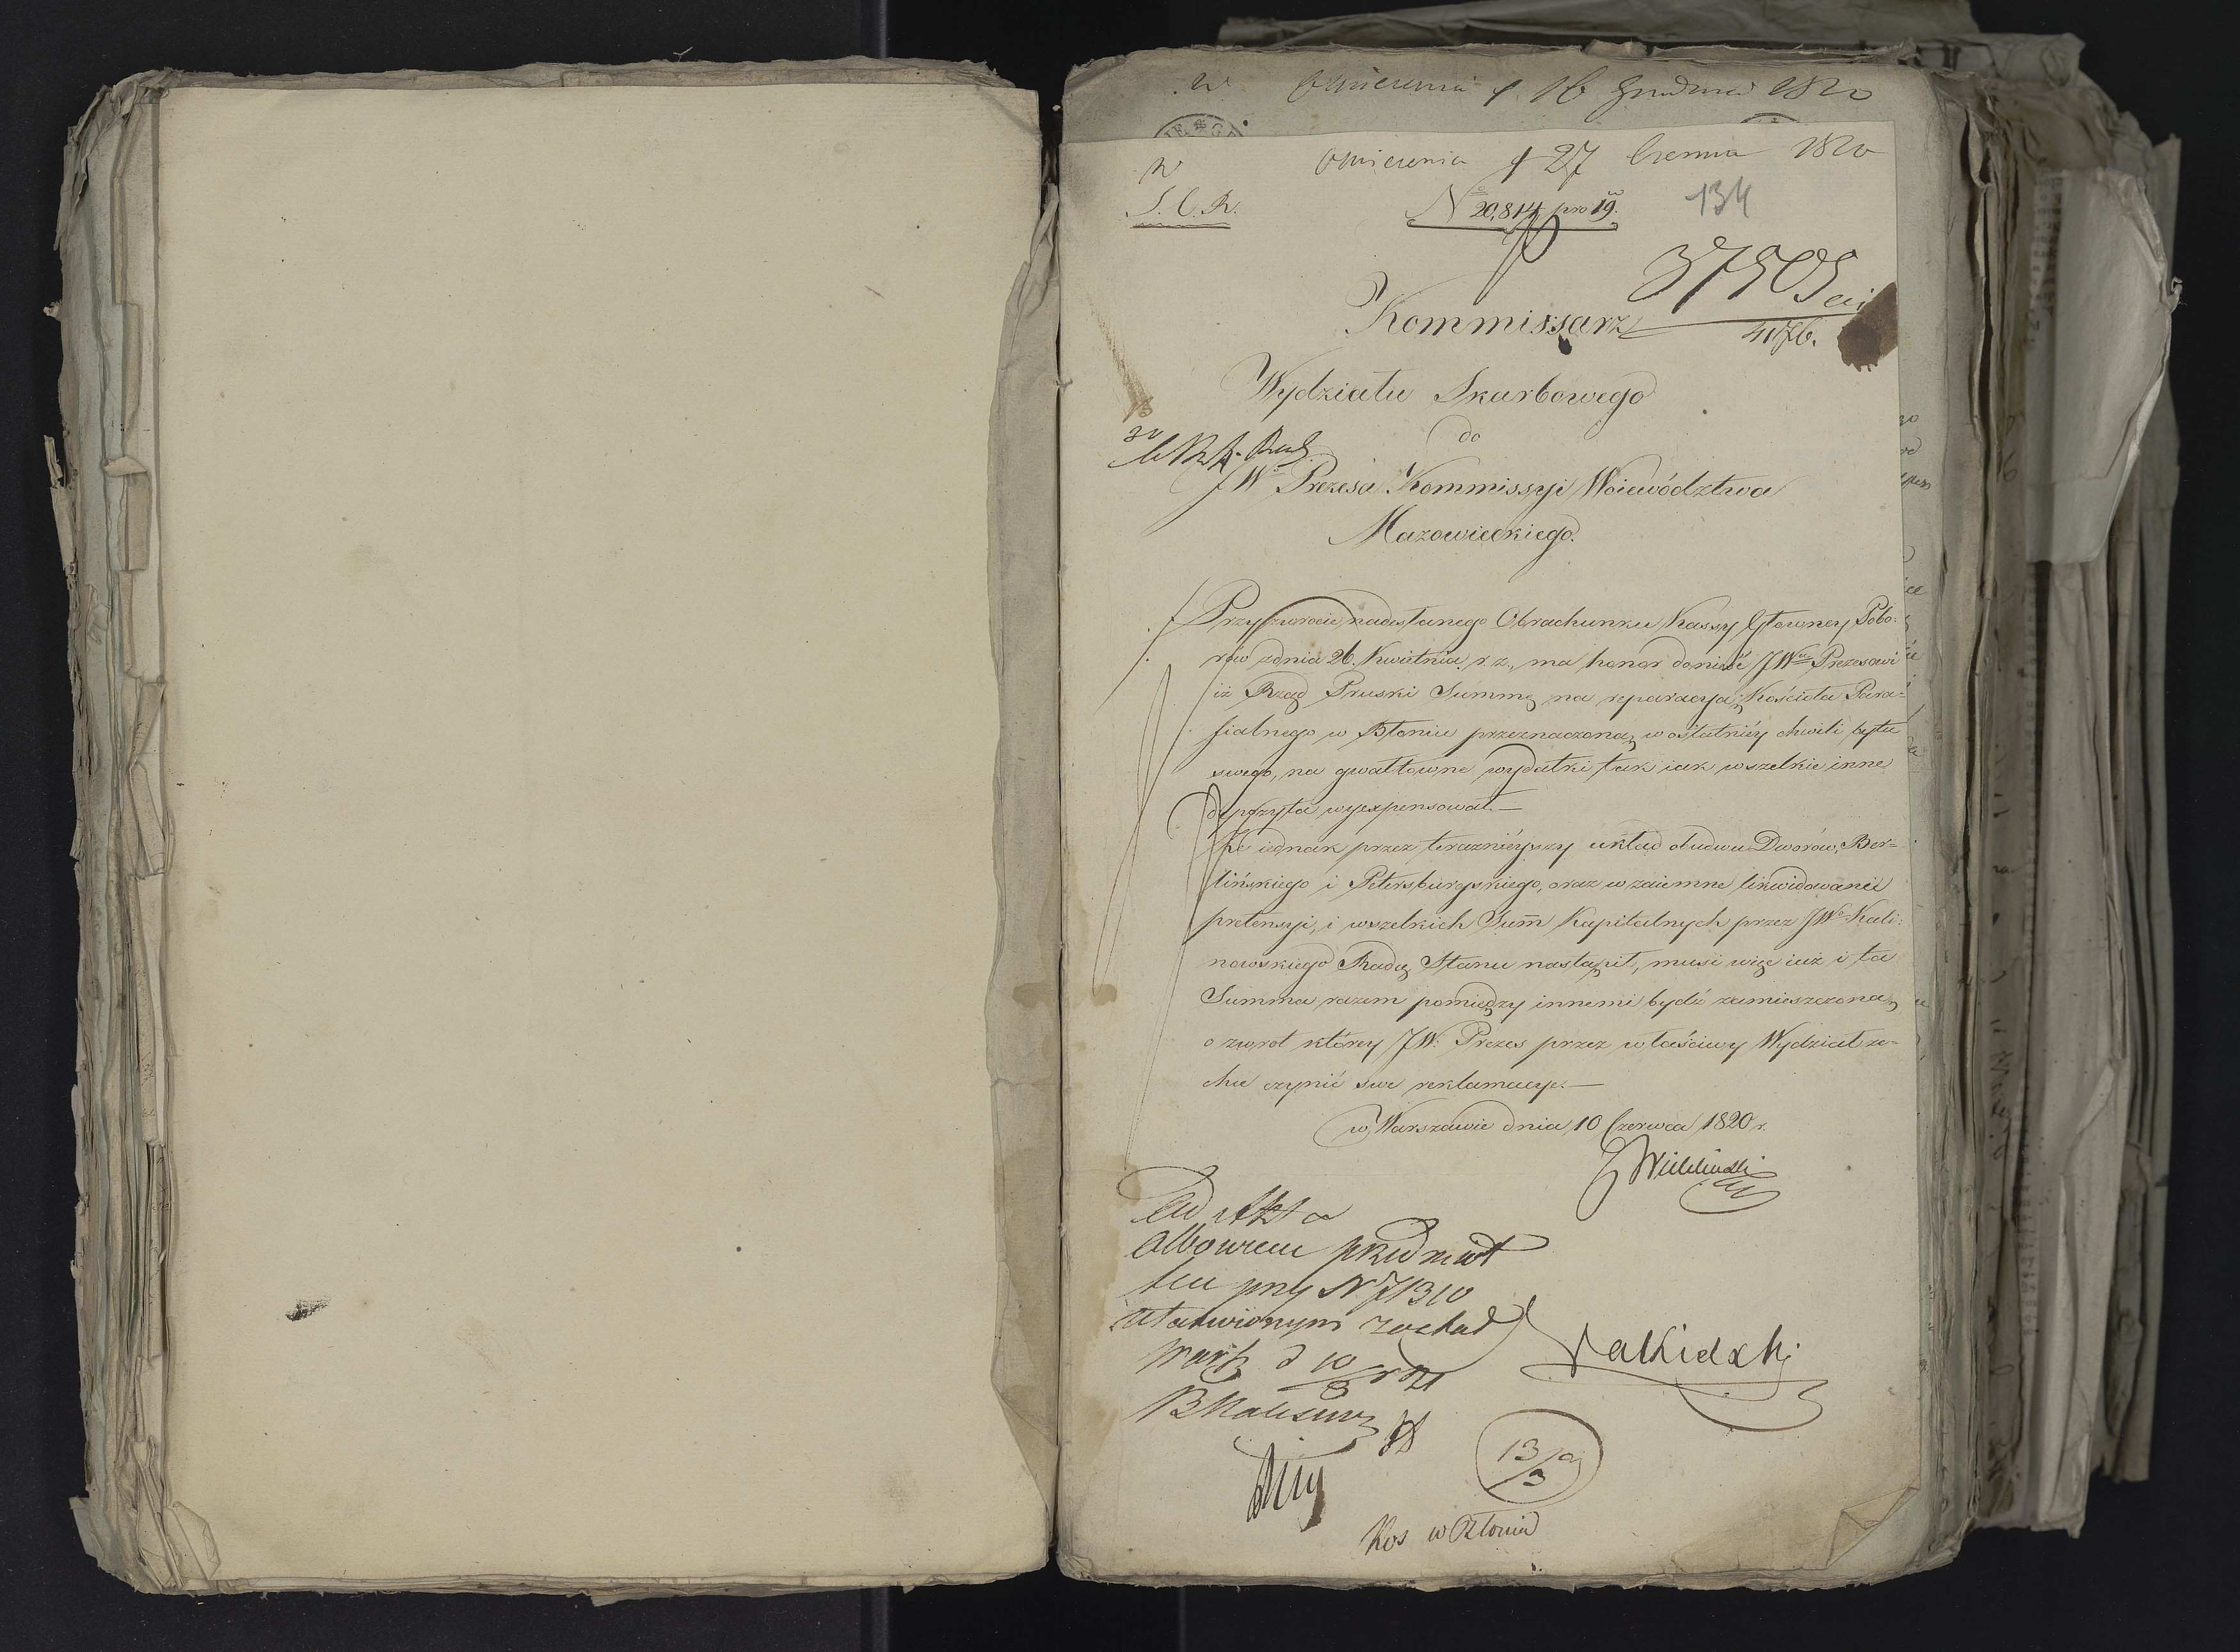 w Omieszenia d 16 Grudnia 1820
w Omieszenia d 27 Czerwca 1820
S. C. R.
No 20,814 pro 19.
134
37505
4176.
Kommissarz
Wydziału Skarbowego
do
JW Prezesa Kommissyi Woiewództwa
Mazowieckiego.
Przy zwrocie nadesłanego Obrachunku Kassy Głowney Pobo:
rów z dnia 26. Kwietnia r. z., ma honor donieść JWu Prezesowi
iż Rząd Pruski Summę na reparacyą Kościoła Para-
fialnego w Błoniu przeznaczoną w ostatniéy chwili bytu
swego, na gwałtowne wydatki tak iak wszelkie inne
depozyta wyexpensował.—
Że iednak przez teraznieyszy układ oludwu Dworów, Ber=
lińskiego i Petersburgskiego, oraz wzaiemne likwidowanie
pretensyi, i wszelkich Sum̄ Kapitalnych przez JWo Kali:
nowskiego Radcę Stanu nastąpił, musi więc iuż i ta
Summa razem pomiędzy innemi bydź zamieszczoną
o zwrot którey JW: Prezes przez właściwy Wydział ze-
chce czynić swe reklamacye.—
w Warszawie dnia 10 Czerwca 1820 r.
Ad Akta
albowiem przedmiot
ten przy N 71310
załatwionym został
Warsz d 10/3 r 821
13/3
Kos w Błoniu